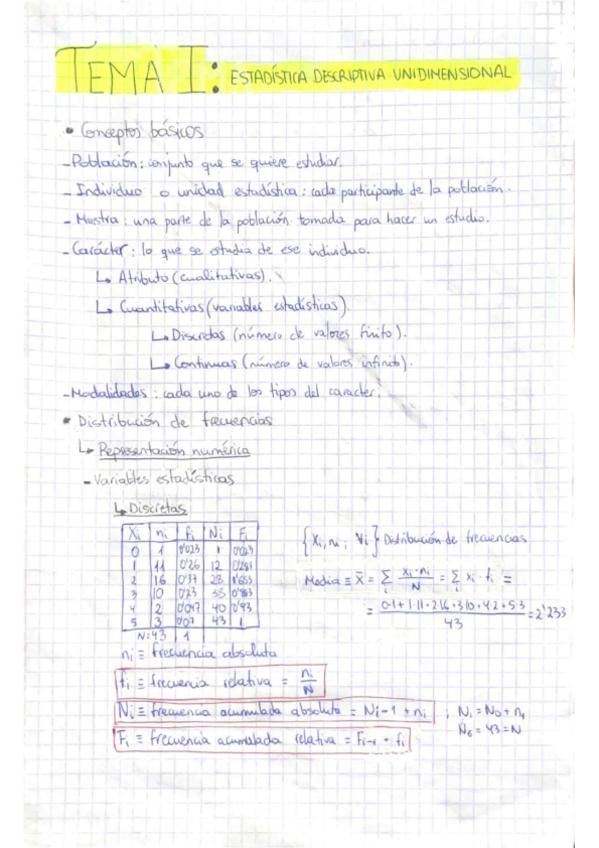 TEMA I: ESTADÍSTICA DESCRIPTIVA UNIDIMENSIONAL
• Conceptos básicos
- Población: conjunto que se quiere estudiar.
- Individuo o unidad estadística: cada participante de la población.
- Muestra: una parte de la población tomada para hacer un estudio.
- Carácter: lo que se estudia de ese individuo.
↳ Atributo (cualitativas).
↳ Cuantitativas (variables estadísticas).
↳ Discretas (número de valores finito).
↳ Continuas (número de valores infinito).
- Modalidades: cada uno de los tipos del caracter.
• Distribución de frecuencias
↳ Representación numérica
- Variables estadísticas
↳ Discretas
Xi | ni | fi | Ni | Fi
0 | 1 | 0'023 | 1 | 0'023
1 | 11 | 0'26 | 12 | 0'281
2 | 16 | 0'37 | 28 | 0'653
3 | 10 | 0'23 | 38 | 0'883
4 | 2 | 0'047 | 40 | 0'93
5 | 3 | 0'07 | 43 | 1
N=43 | 1
{Xi, ni; ∀i} Distribución de frecuencias
Media ≡ X̄ = Σi xi·ni/N = Σi xi·fi =
= 0·1+1·11+2·16+3·10+4·2+5·3/43 = 2'233
ni ≡ frecuencia absoluta
fi ≡ frecuencia relativa = ni/N
Ni ≡ frecuencia acumulada absoluta = Ni-1 + ni ; N1 = N0 + n1
N6 = 43 = N
Fi ≡ frecuencia acumulada relativa = Fi-1 + fi